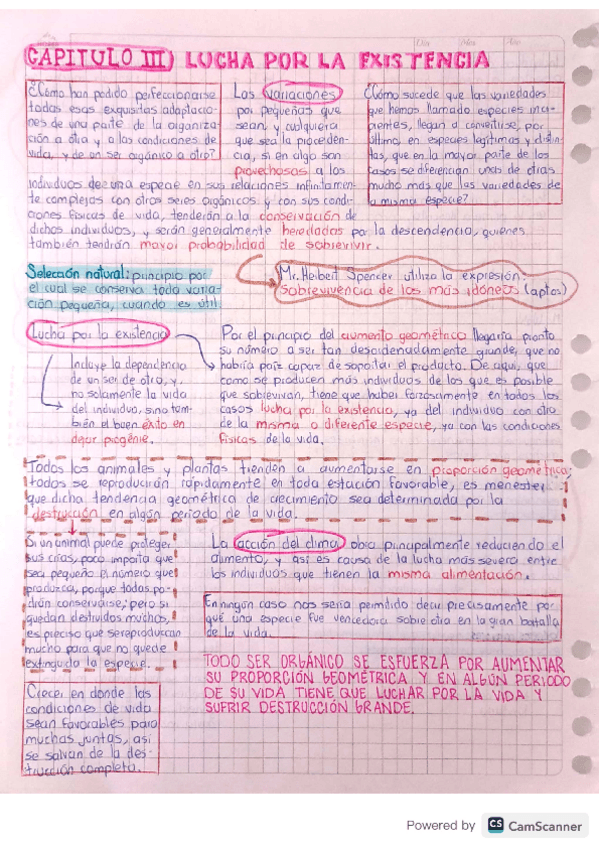 CAPITULO III) LUCHA POR LA EXISTENCIA
¿Cómo han podido perfeccionarse
todas esas exquisitas adaptacio-
nes de una parte de la organiza-
ción a otra y a las condiciones de
vida, y de un ser orgánico a otro?
Las variaciones
por pequeñas que
sean y cualquiera
que sea la proceden-
cia, si en algo son
provechosas a los
individuos de una especie en sus relaciones infinitamen-
te complejas con otros seres orgánicos y con sus condi-
ciones físicas de vida, tenderán a la conservación de
dichos individuos, y serán generalmente heredadas por la descendencia, quienes
también tendrán mayor probabilidad de sobrevivir.
¿Cómo sucede que las variedades
que hemos llamado especies inci-
pientes, llegan a convertirse, por
último, en especies legítimas y distin-
tas, que en la mayor parte de los
casos se diferencian unas de otras
mucho más que las variedades de
la misma especie?
Selección natural: principio por
el cual se conserva toda varia-
ción pequeña, cuando es útil.
Mr. Herbert Spencer utiliza la expresión:
Sobrevivencia de los más idóneos (aptos)
Lucha por la existencia
Incluye la dependencia
de un ser de otro, y,
no solamente la vida
del individuo, sino tam-
bién el buen éxito en
dejar progenie.
Por el principio del aumento geométrico llegaría pronto
su número a ser tan desordenadamente grande, que no
habría país capaz de soportar el producto. De aquí, que
como se producen más individuos de los que es posible
que sobrevivan, tiene que haber forzosamente en todos los
casos lucha por la existencia, ya del individuo con otro
de la misma o diferente especie, ya con las condiciones
físicas de la vida.
Todos los animales y plantas tienden a aumentarse en proporción geométrica;
todos se reproducirán rápidamente en toda estación favorable, es menester
que dicha tendencia geométrica de crecimiento sea determinada por la
destrucción en algún período de la vida.
Si un animal puede proteger
sus crías, poco importa que
sea pequeño el número que
produzca, porque todas po-
drán conservarse; pero si
quedan destruidos muchos,
es preciso que se reproduzcan
mucho para que no quede
extinguida la especie.
La acción del clima obra principalmente reduciendo el
alimento, y así es causa de la lucha más severa entre
los individuos que tienen la misma alimentación.
En ningún caso nos sería permitido decir precisamente por
qué una especie fue vencedora sobre otra en la gran batalla
de la vida.
TODO SER ORGÁNICO SE ESFUERZA POR AUMENTAR
SU PROPORCIÓN GEOMÉTRICA Y EN ALGÚN PERIODO
DE SU VIDA TIENE QUE LUCHAR POR LA VIDA Y
SUFRIR DESTRUCCIÓN GRANDE.
Crecer en donde las
condiciones de vida
sean favorables para
muchas juntas, así
se salvan de la des-
trucción completa.
Powered by CS CamScanner